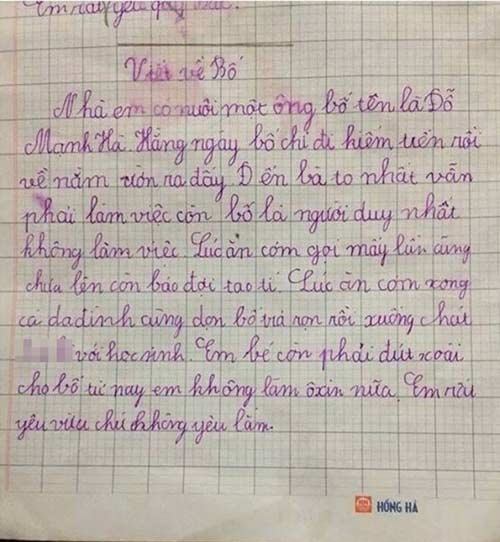 Em rất yêu quý
Viết về Bố
Nhà em có nuôi một ông bố tên là Đỗ
Mạnh Hà. Hằng ngày bố chỉ đi kiếm tiền rồi
về nằm ườn ra đấy. Đến bà to nhất vẫn
phải làm việc còn bố là người duy nhất
không làm việc. Lúc ăn cơm gọi mấy lần cũng
chưa lên còn bảo đợi tao tí. Lúc ăn cơm xong
cả da đình cùng dọn bố trả rọn rồi xuống chat
với học sinh. Em bé còn phải dút xoài
cho bố từ nay em không làm ôxin nữa. Em rấu
yêu vừa chứ không yêu lắm.
HỒNG HÀ